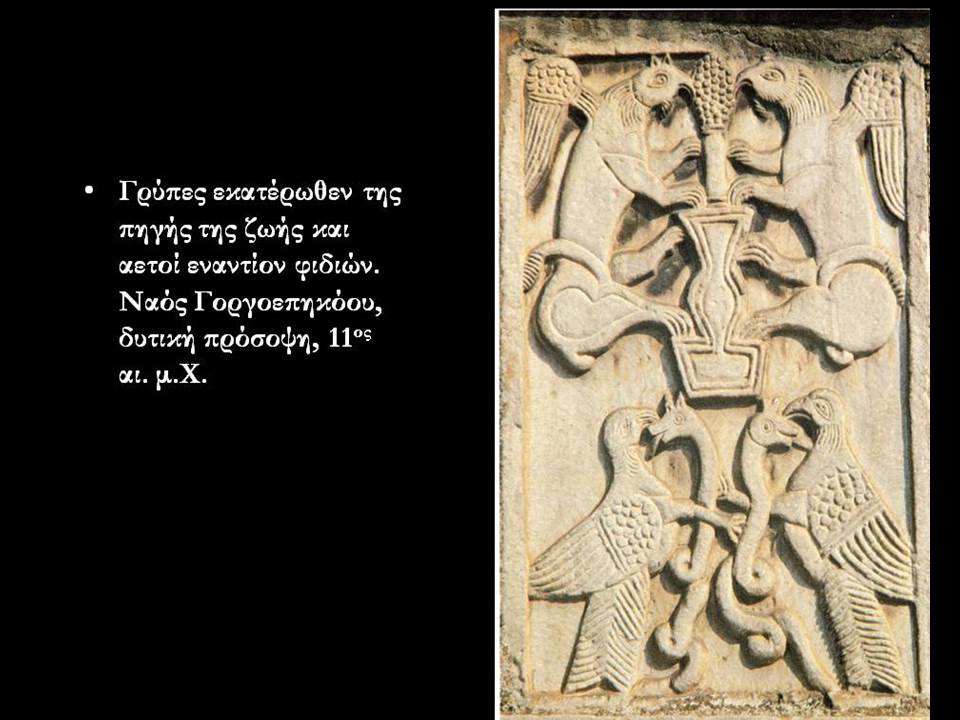 • Γρύπες εκατέρωθεν της
πηγής της ζωής και
αετοί εναντίον φιδιών.
Ναός Γοργοεπηκόου,
δυτική πρόσοψη, 11ος
αι. μ.Χ.